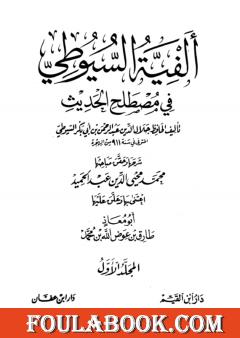 ألفية السيوطي
في مصطلح الحديث
تأليف الحافظ جلال الدين عبد الرحمن بن أبي بكر السيوطي
المتوفى في سنة ٩١١ من الهجرة
شرحها وحقق مباحثها
محمد محيي الدين عبد الحميد
اعتنى بها وعلق عليها
أبو معاذ
طارق بن عوض الله بن محمد
المجلد الأول
دار ابن القيم
دار ابن عفان
FOULABOOK.COM